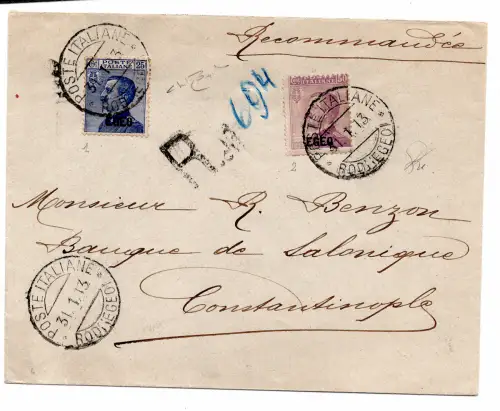 Recommandée
POSTE ITALIANE
25 POSTE ITALIANE 25
EGEO
R
694
EGEO
POSTE ITALIANE
31.1.13
RODI (EGEO)
1
2
Monsieur R. Benzon
Banque de Salonique
Constantinople
POSTE ITALIANE
31.1.13
RODI (EGEO)